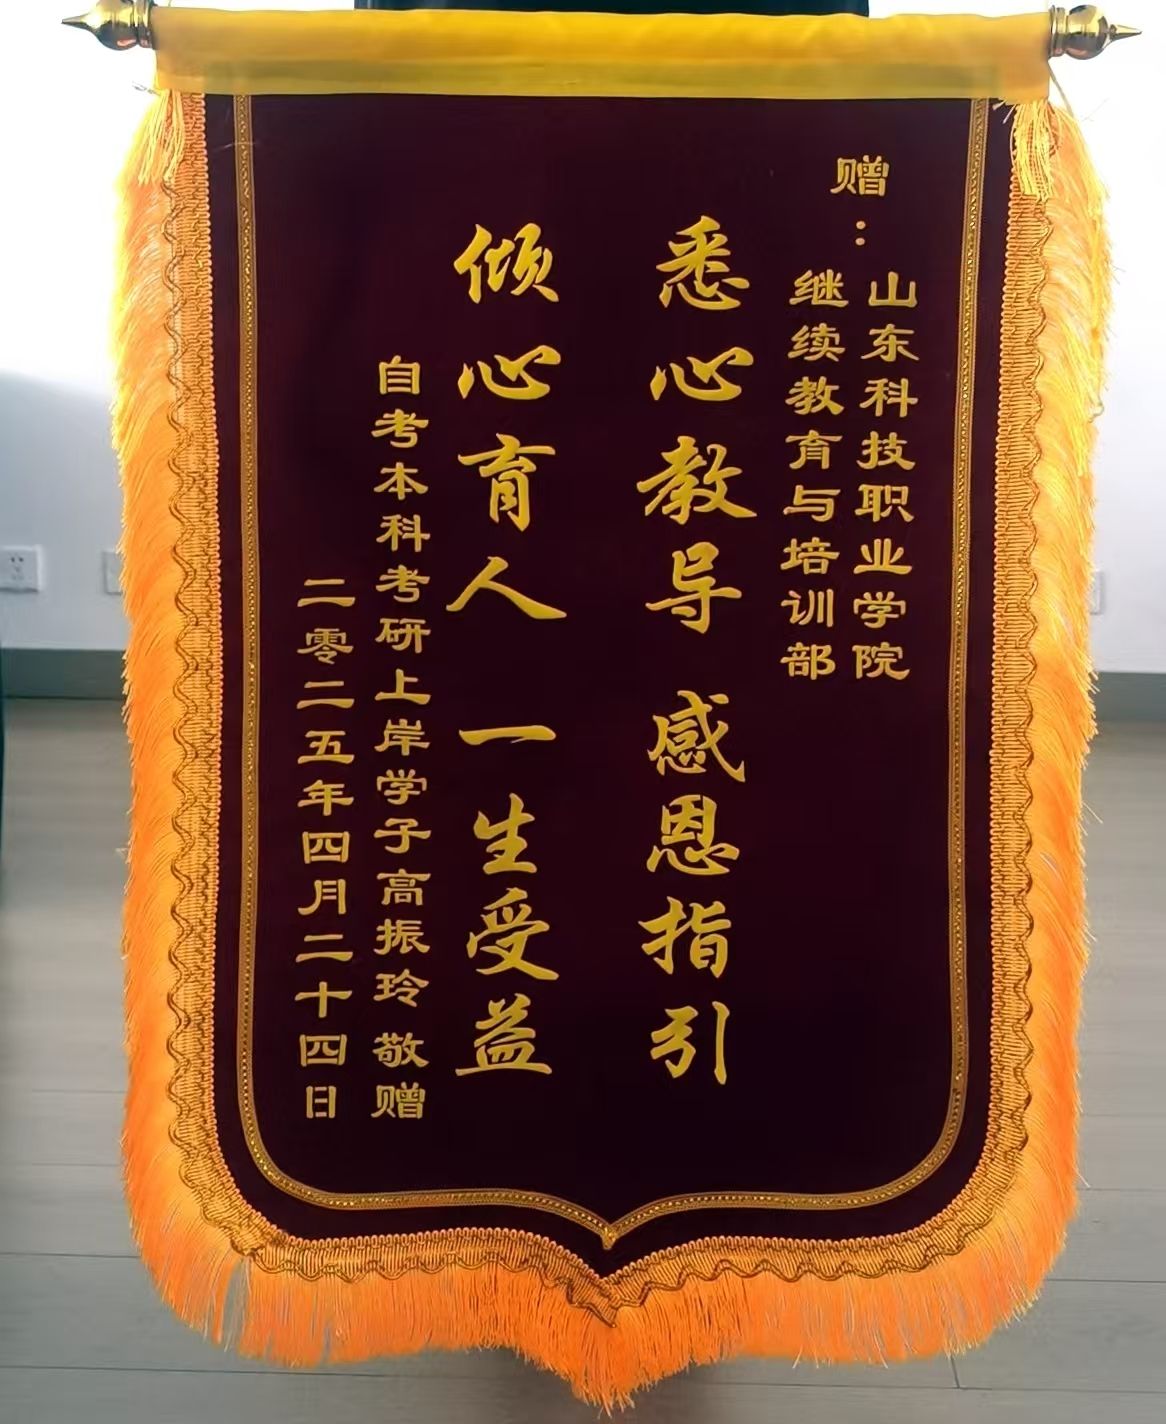 赠：
山东科技职业学院
继续教育与培训部
悉心教导 感恩指引
倾心育人 一生受益
自考本科考研上岸学子高振玲 敬赠
二零二五年四月二十四日